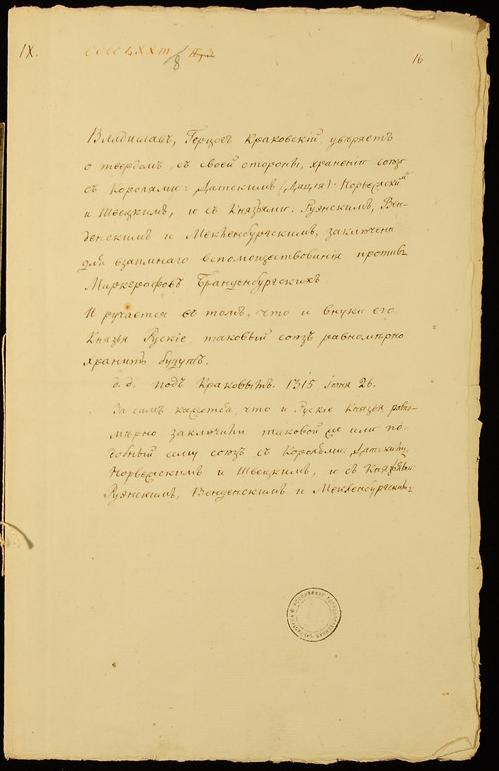 IX. CCCCLXXIII/8 16
Владиславъ, Герцогъ Краковскій, увѣряетъ
о твердомъ, съ своей стороны, храненіи союза
съ Королями: Датскимъ (Дація) Норвежскимъ
и Шведскимъ, и съ Князьями: Руянскимъ, Вен-
денскимъ и Мекленбургскимъ, заключени
для взаимнаго вспомоществованія противъ
Маркграфовъ Бранденбургскихъ
И ручается въ томъ, что и внуки его
Князья Рускіе, таковый союзъ равномѣрно
хранить будутъ.
д. д. подъ Краковымъ. 1315 Іюня 26.
За симъ кажется, что и Рускіе Князья равно-
мѣрно заключили таковой же или по-
добный сему союзъ съ Королями: Датскимъ,
Норвежскимъ и Шведскимъ, и съ Князьями
Руянскимъ, Венденскимъ и Мекленбургскимъ